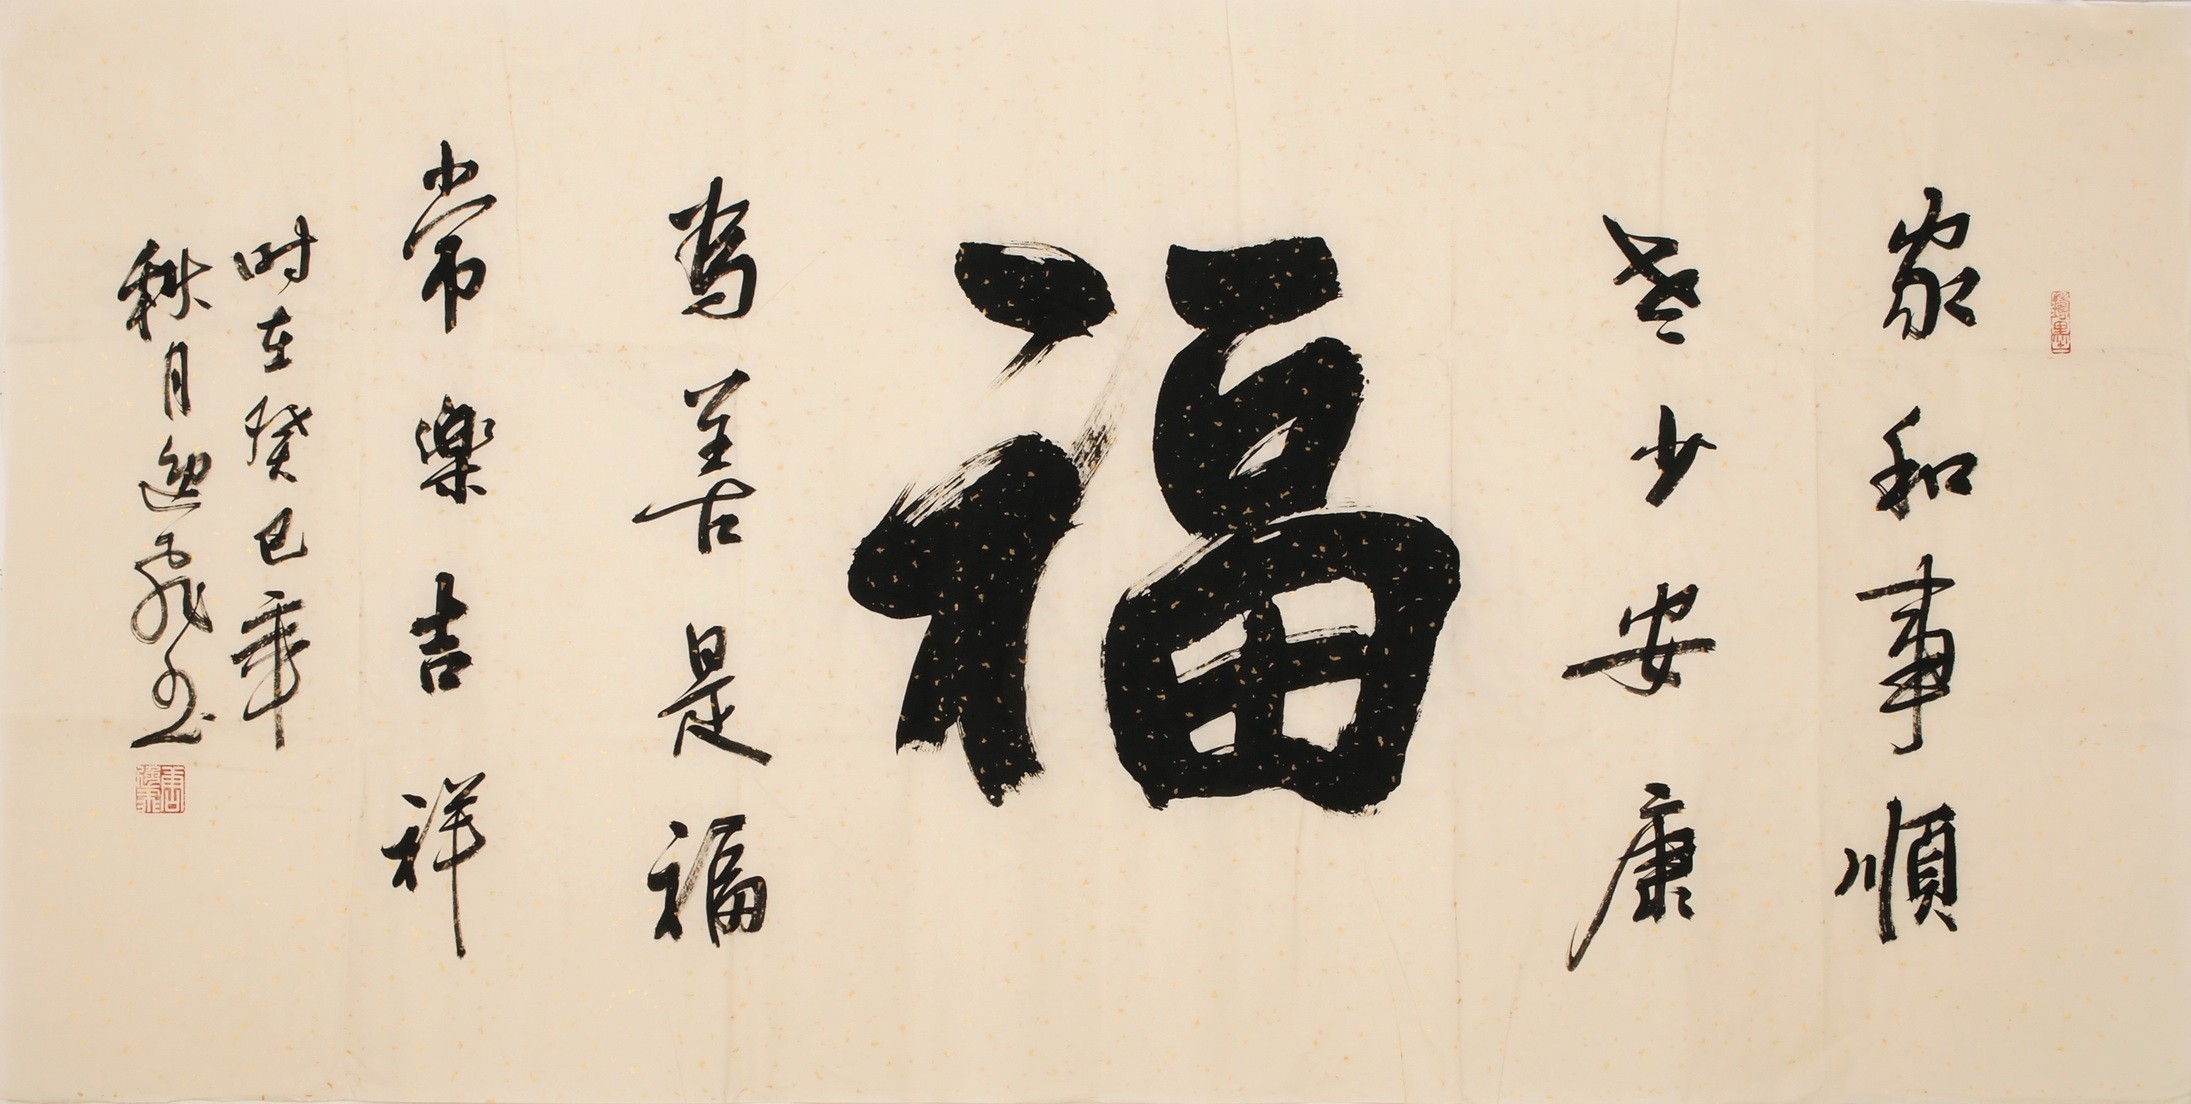 家和事順
老少安康
福
為善是福
常樂吉祥
時在癸巳年
秋月逸飛書